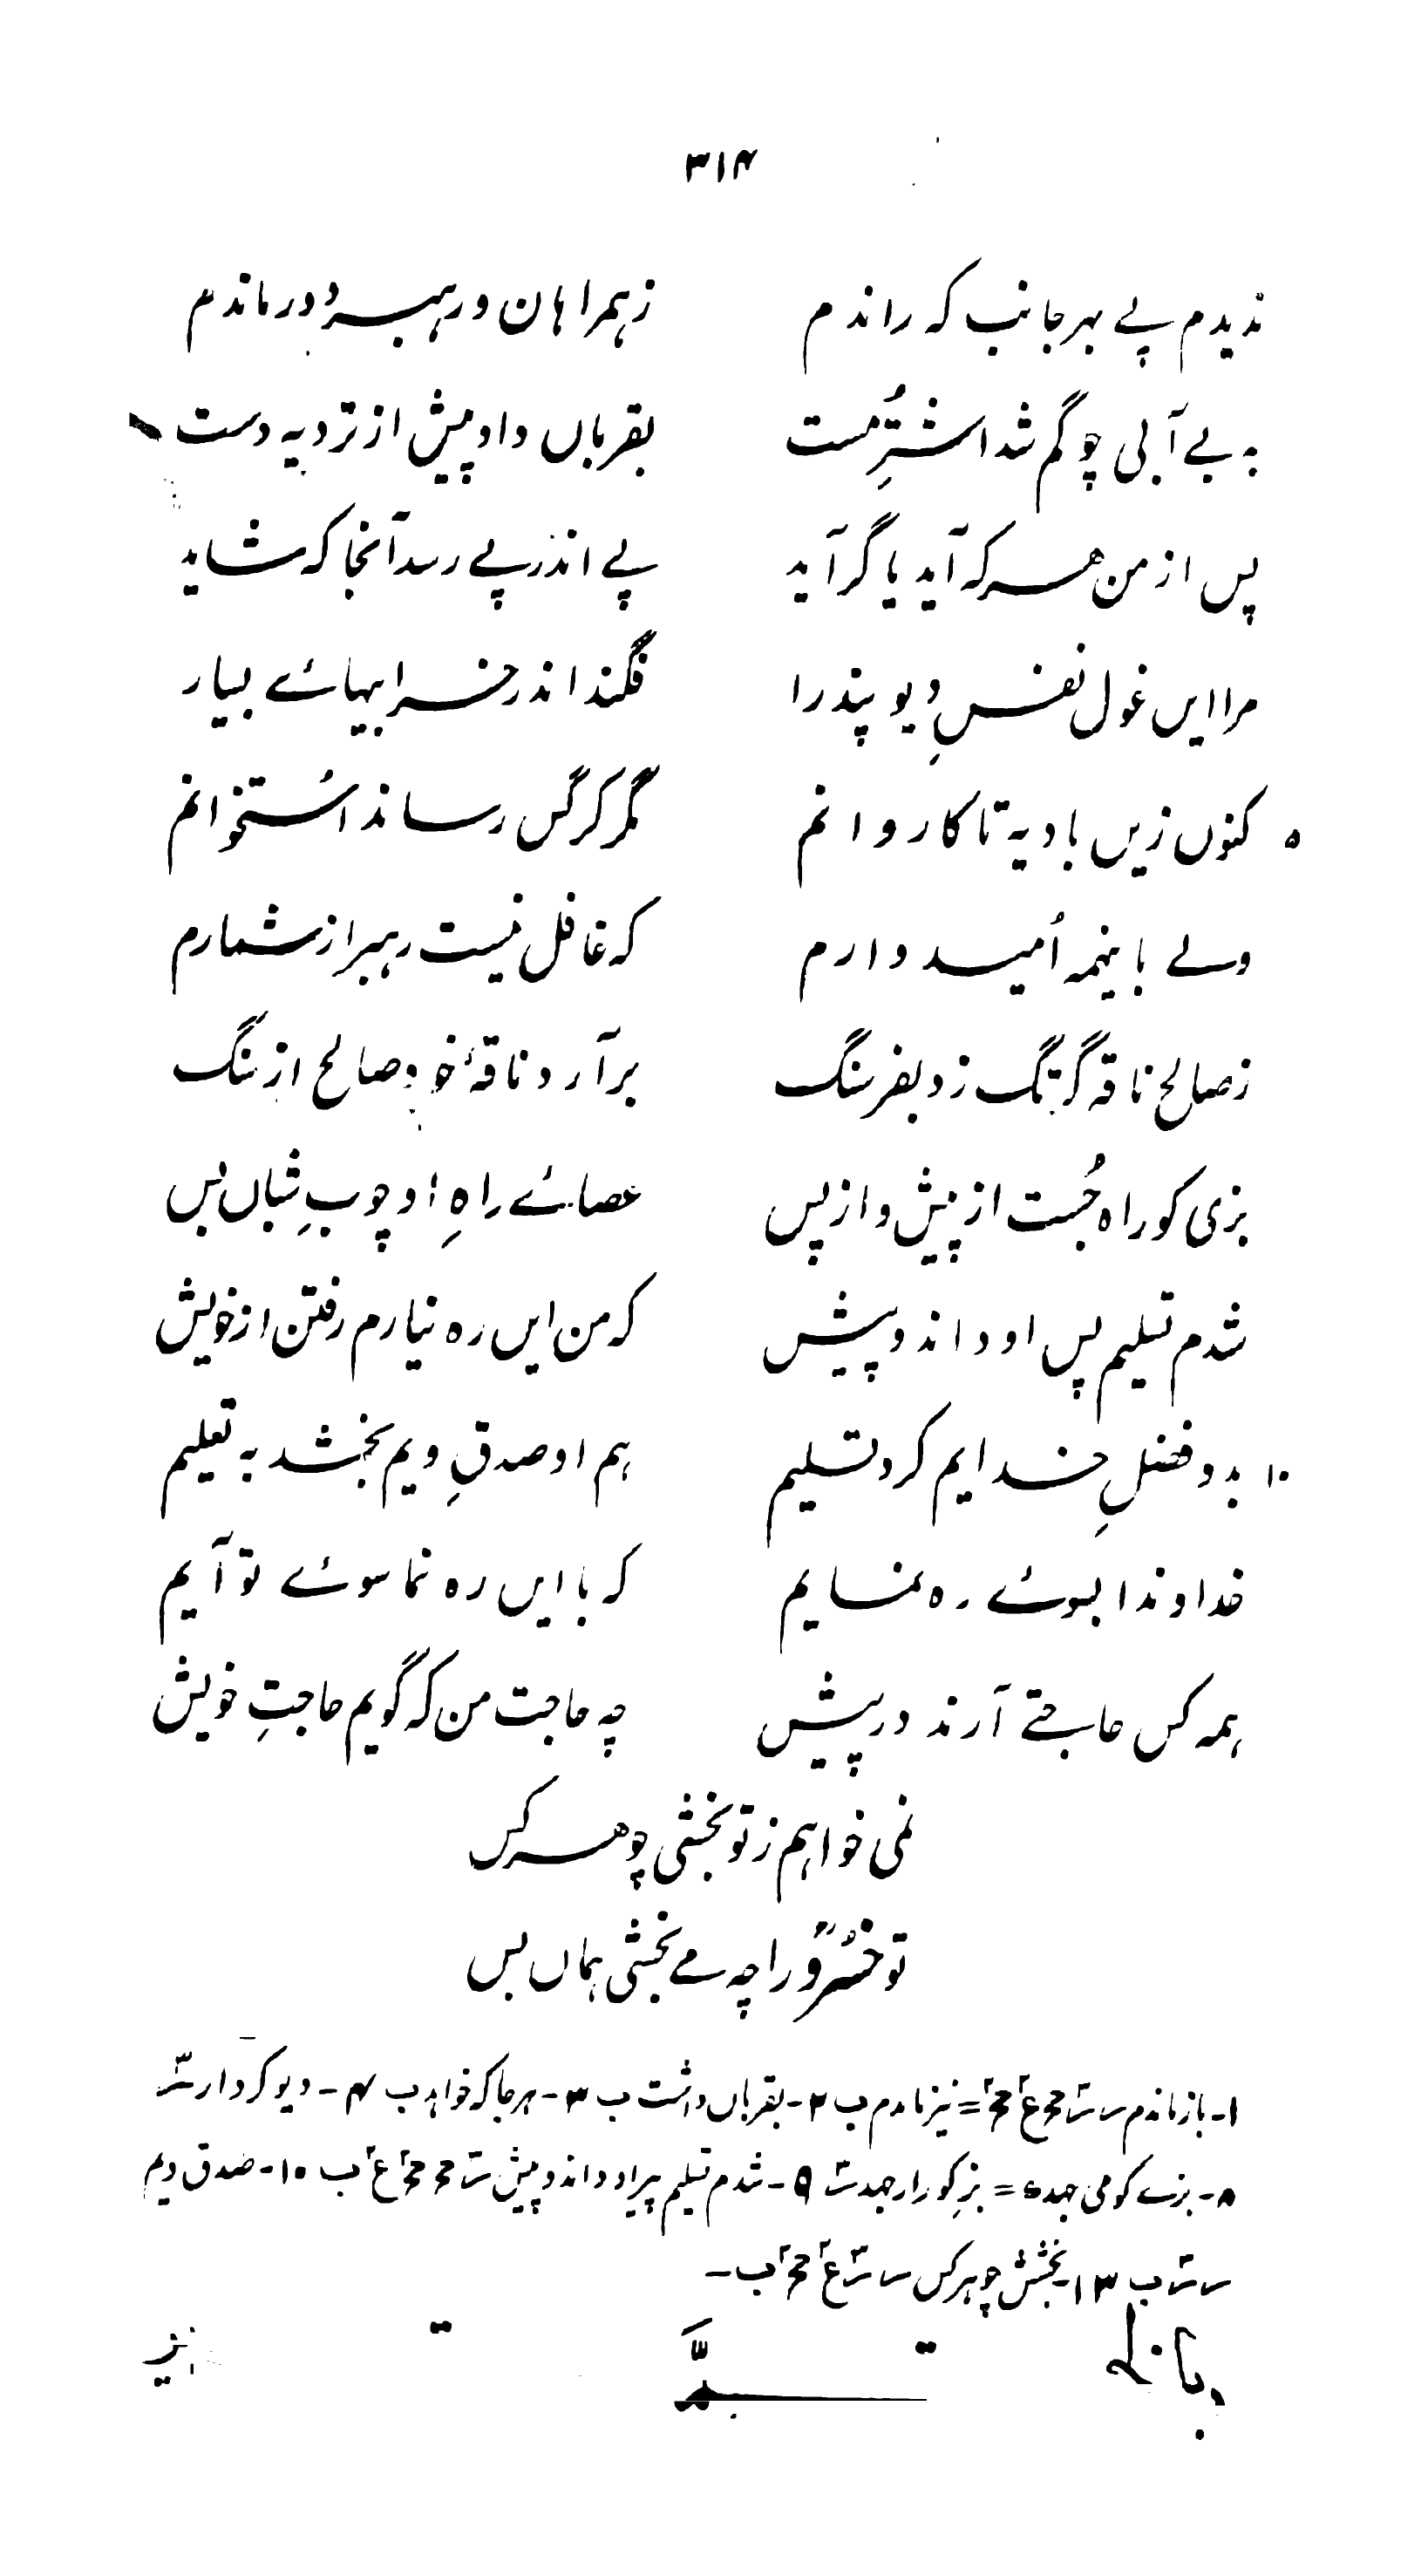 ۳۱۴
ندیدم پے بہر جانب کہ راندم زہمراہان و رہبر دور ماندم
بہ بے آبی چو گم شد اشترِ مست بقرباں داد پیش از ترویہ دست
پس از من ہر کہ آید یا گر آید پے اندر پے رسد آنجا کہ شاید
مرا ایں غول نفسِ دیو پندرا فگند اندر خرابیہائے بسیار
۵ کنوں زیں بادیہ تا کاروانم مگر کرگس رساند اُستخوانم
ولے باینہمہ اُمید دارم کہ غافل نیست رہبر از شمارم
ز صالح ناقہ گر تگ زد بفرسنگ برآرد ناقۂ خود صالح از سنگ
بزی کو راہ جُست از پیش و از پس عصائے راہِ او چوبِ شباں بس
شدم تسلیم پس او داند و پیش کہ من ایں رہ نیارم رفتن از خویش
۱۰ بدو فضلِ خدایم کرد تسلیم ہم او صدقِ ویم بخشد بہ تعلیم
خداوندا بسوئے رہ نمایم کہ با ایں رہ نما سوئے تو آیم
ہمہ کس حاجتے آرند در پیش چہ حاجت من کہ گویم حاجتِ خویش
نمی خواہم ز تو بخشی چو ہر کس
تو خسرو را چہ مے بخشی ہماں بس
۱- باز ماندم = نیز ماندم ب ۲- بقرباں داشت ب ۳- ہر جا کہ خواہد ب ۴- دیو کردار
۸- بزے کو می جہد = بزِ کو را ۹- شدم تسلیم پیر او داند و پیش ۱۰- صدق دیم
ب ۱۳- بخشش چو ہر کس